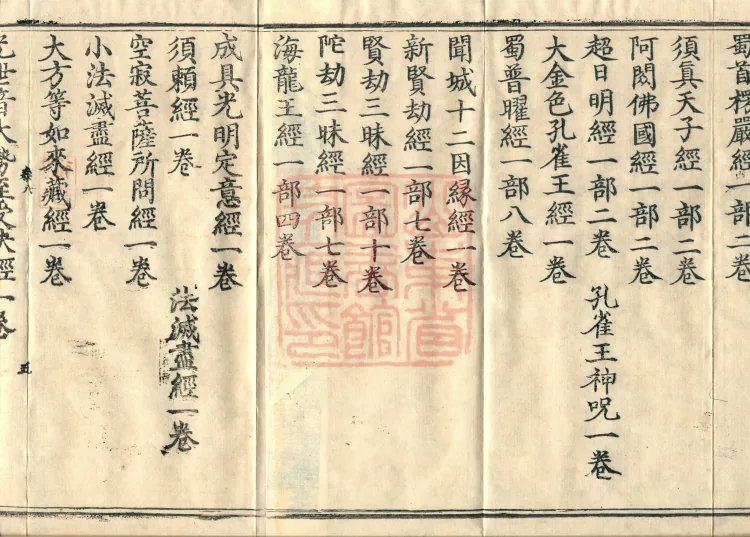 蜀首楞嚴經一部二卷
須真天子經一部二卷
阿閦佛國經一部二卷
超日明經一部二卷 孔雀王神呪一卷
大金色孔雀王經一卷
蜀普曜經一部八卷
聞城十二因緣經一卷
新賢劫經一部七卷
賢劫三昧經一部十卷
陀劫三昧經一部七卷
海龍王經一部四卷
成具光明定意經一卷
須賴經一卷 法滅盡經一卷
空寂菩薩所問經一卷
小法滅盡經一卷
大方等如來藏經一卷
卷六
五
光世音大勢至受決經一卷